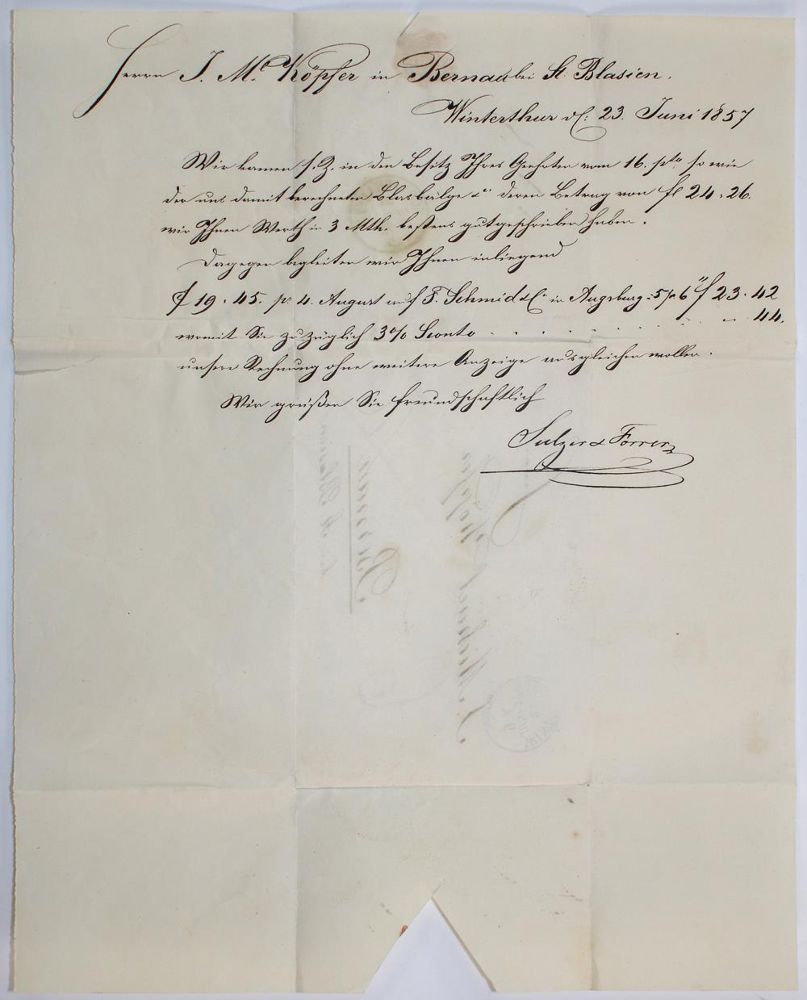 Herrn J. Mch Köpfer in Bernau bei St. Blasien.
Winterthur d. 23. Juni 1857
Wir kamen s. Z. in den Besitz Ihres Geehrten vom 16. pto so wie
der uns damit berechneten Blasbälge deren Betrag von fl 24.26.
wir Ihnen Werth in 3 Mth. bestens gutgeschrieben haben.
Dagegen begleiten wir Ihnen inliegend
f 19.45. pr 4. August auf F. Schmid & Co in Augsburg f 23.42
womit Sie zuzüglich 3% Sconto . . . . . . . . . . 44.
unsere Rechnung ohne weitere Anzeige ausgleichen wollen.
Wir grüßen Sie freundschaftlich
Sulzer & Forrer